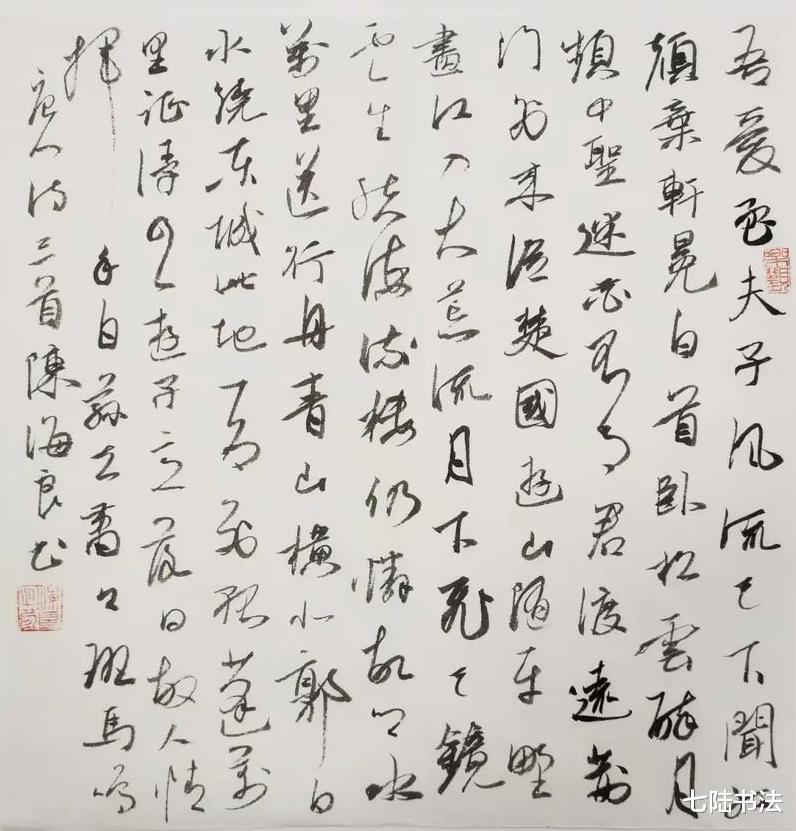 吾愛孟夫子风流天下聞红
顏棄軒冕白首卧松雲醉月
頻中聖迷花不事君渡遠荆
门外来從楚國遊山随平野
盡江入大荒流月下飞天鏡
雲生結海楼仍憐故乡水
萬里送行舟青山横北郭白
水绕东城此地一为别孤蓬萬
里征浮云遊子意落日故人情
挥手自兹去萧萧班馬鸣
唐人诗三首陳海良书
七陆书法